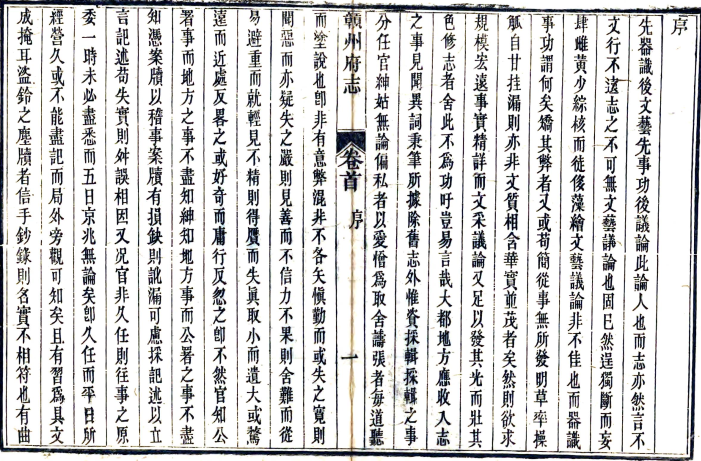 序
先器識後文藝先事功後議論此論人也而志亦然言不
文行不遠志之不可無文藝議論也固已然逞獨斷而妄
肆雌黃少綜核而徒後藻繪文藝議論非不佳也而器識
事功謂何矣矯其弊者又或苟簡從事無所發明草率操
觚自甘挂漏則亦非文質相含華實並茂者矣然則欲求
規模宏遠事實精詳而文采議論又足以發其光而壯其
色修志者舍此不爲功吁豈易言哉大都地方應收入志
之事見聞異詞秉筆所據除舊志外惟資採輯採輯之事
分任官紳姑無論偏私者以愛憎爲取舍譸張者每道聽
贛州府志
卷首
序
一
而塗說也卽非有意弊混非不各矢愼勤而或失之寬則
聞惡而亦疑失之嚴則見善而不信力不果則舍難而從
易避重而就輕見不精則得贋而失眞取小而遺大或騖
遠而近處反畧之或好奇而庸行反忽之卽不然官知公
署事而地方之事不盡知紳知地方事而公署之事不盡
知憑案牘以稽事案牘有損缺則訛漏可慮採記述以立
言記述苟失實則舛誤相因又况官非久任則往事之原
委一時未必盡悉而五日京兆無論矣卽久任而平日所
經營久或不能盡記而局外旁觀可知矣且有習爲具文
成掩耳盜鈴之塵牘者信手鈔錄則名實不相符也有曲